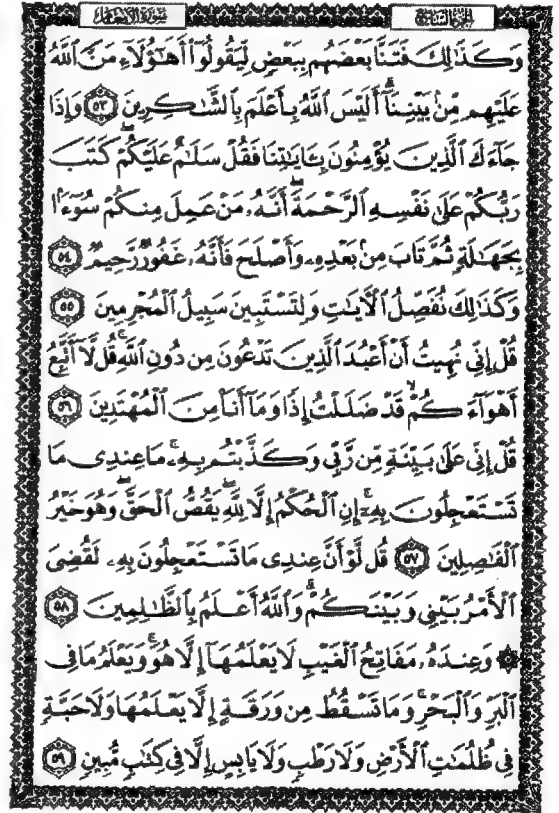 سورة الأنعام
الجزء السابع
وَكَذَٰلِكَ فَتَنَّا بَعْضَهُم بِبَعْضٍ لِّيَقُولُوٓا۟ أَهَٰٓؤُلَآءِ مَنَّ ٱللَّهُ
عَلَيْهِم مِّنۢ بَيْنِنَآ ۗ أَلَيْسَ ٱللَّهُ بِأَعْلَمَ بِٱلشَّٰكِرِينَ ٥٣ وَإِذَا
جَآءَكَ ٱلَّذِينَ يُؤْمِنُونَ بِـَٔايَٰتِنَا فَقُلْ سَلَٰمٌ عَلَيْكُمْ ۖ كَتَبَ
رَبُّكُمْ عَلَىٰ نَفْسِهِ ٱلرَّحْمَةَ ۖ أَنَّهُۥ مَنْ عَمِلَ مِنكُمْ سُوٓءًۢا
بِجَهَٰلَةٍ ثُمَّ تَابَ مِنۢ بَعْدِهِۦ وَأَصْلَحَ فَأَنَّهُۥ غَفُورٌ رَّحِيمٌ ٥٤
وَكَذَٰلِكَ نُفَصِّلُ ٱلْـَٔايَٰتِ وَلِتَسْتَبِينَ سَبِيلُ ٱلْمُجْرِمِينَ ٥٥
قُلْ إِنِّى نُهِيتُ أَنْ أَعْبُدَ ٱلَّذِينَ تَدْعُونَ مِن دُونِ ٱللَّهِ ۚ قُل لَّآ أَتَّبِعُ
أَهْوَآءَكُمْ ۙ قَدْ ضَلَلْتُ إِذًا وَمَآ أَنَا۠ مِنَ ٱلْمُهْتَدِينَ ٥٦
قُلْ إِنِّى عَلَىٰ بَيِّنَةٍ مِّن رَّبِّى وَكَذَّبْتُم بِهِۦ ۚ مَا عِندِى مَا
تَسْتَعْجِلُونَ بِهِۦٓ ۚ إِنِ ٱلْحُكْمُ إِلَّا لِلَّهِ ۖ يَقُصُّ ٱلْحَقَّ ۖ وَهُوَ خَيْرُ
ٱلْفَٰصِلِينَ ٥٧ قُل لَّوْ أَنَّ عِندِى مَا تَسْتَعْجِلُونَ بِهِۦ لَقُضِىَ
ٱلْأَمْرُ بَيْنِى وَبَيْنَكُمْ ۗ وَٱللَّهُ أَعْلَمُ بِٱلظَّٰلِمِينَ ٥٨
۞ وَعِندَهُۥ مَفَاتِحُ ٱلْغَيْبِ لَا يَعْلَمُهَآ إِلَّا هُوَ ۚ وَيَعْلَمُ مَا فِى
ٱلْبَرِّ وَٱلْبَحْرِ ۚ وَمَا تَسْقُطُ مِن وَرَقَةٍ إِلَّا يَعْلَمُهَا وَلَا حَبَّةٍ
فِى ظُلُمَٰتِ ٱلْأَرْضِ وَلَا رَطْبٍ وَلَا يَابِسٍ إِلَّا فِى كِتَٰبٍ مُّبِينٍ ٥٩